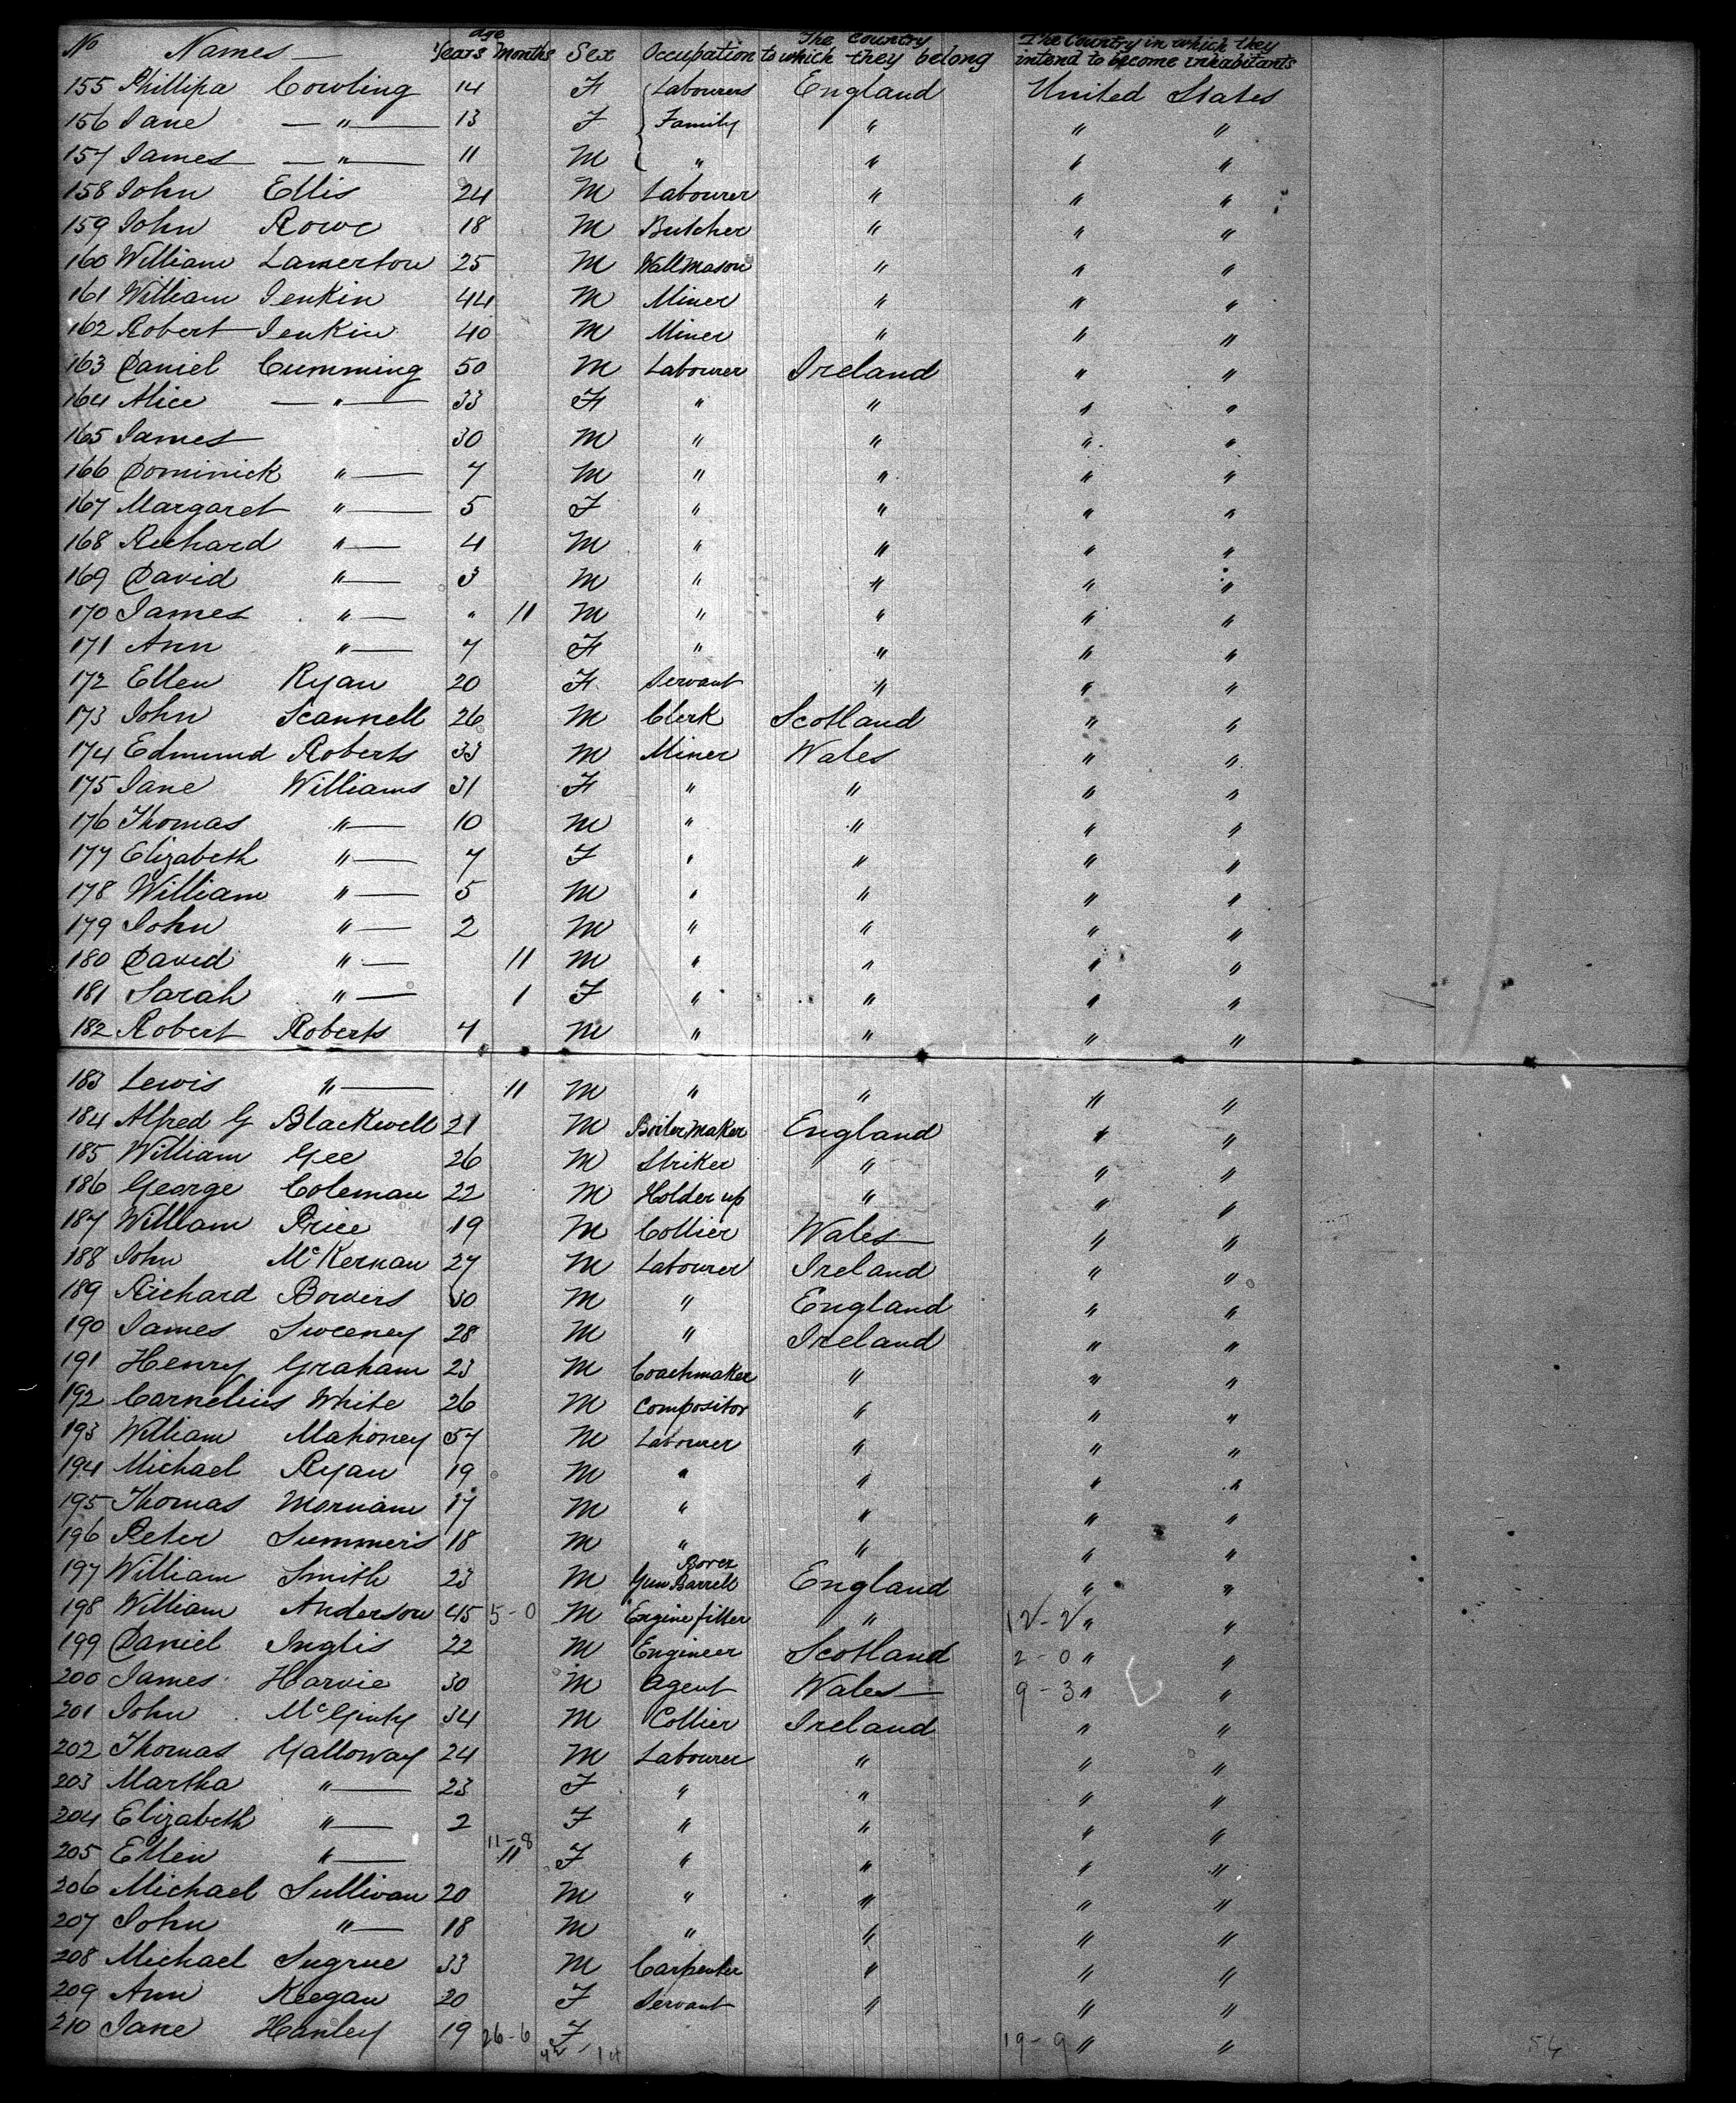 No Names — age Years Months Sex Occupation The Country to which they belong The Country in which they intend to become inhabitants
155 Phillipa Cowling 14 F Labourers England United States
156 Jane — " — 13 F Family " " "
157 James — " — 11 M " " " "
158 John Ellis 24 M Labourer " " "
159 John Rowe 18 M Butcher " " "
160 William Lamerton 25 M Wallmason " " "
161 William Jenkin 44 M Miner " " "
162 Robert Jenkin 40 M Miner " " "
163 Daniel Cumming 50 M Labourer Ireland " "
164 Alice — " — 33 F " " " "
165 James 30 M " " " "
166 Dominick " — 7 M " " " "
167 Margaret " — 5 F " " " "
168 Richard " — 4 M " " " "
169 David " — 3 M " " " "
170 James " — " 11 M " " " "
171 Ann " — 7 F " " " "
172 Ellen Ryan 20 F Servant " " "
173 John Scannell 26 M Clerk Scotland " "
174 Edmund Roberts 33 M Miner Wales " "
175 Jane Williams 31 F " " " "
176 Thomas " — 10 M " " " "
177 Elizabeth " — 7 F " " " "
178 William " — 5 M " " " "
179 John " — 2 M " " " "
180 David " — 11 M " " " "
181 Sarah " — 1 F " " " "
182 Robert Roberts 4 M " " " "
183 Lewis " — 11 M " " " "
184 Alfred G Blackwell 21 M Boiler Maker England " "
185 William Gee 26 M Striker " " "
186 George Coleman 22 M Holder up " " "
187 William Price 19 M Collier Wales " "
188 John McKernan 27 M Labourer Ireland " "
189 Richard Bowers 30 M " England " "
190 James Sweeney 28 M " Ireland " "
191 Henry Graham 23 M Coachmaker " " "
192 Cornelius White 26 M Compositor " " "
193 William Mahoney 57 M Labourer " " "
194 Michael Ryan 19 M " " " "
195 Thomas 17 M " " " "
196 Peter Summers 18 M " " " "
197 William Smith 23 M Gun Barrell Borer England " "
198 William Anderson 45 5-0 M Engine fitter " 12-2 " "
199 Daniel Inglis 22 M Engineer Scotland 2-0 " "
200 James Harvie 30 M Agent Wales 9-3 " "
201 John McGinty 34 M Collier Ireland " "
202 Thomas Galloway 24 M Labourer " " "
203 Martha " — 23 F " " " "
204 Elizabeth " — 2 F " " " "
205 Ellen " — 11-8 11 F " " " "
206 Michael Sullivan 20 M " " " "
207 John " — 18 M " " " "
208 Michael Sugrue 33 M Carpenter " " "
209 Ann Keegan 20 F Servant " " "
210 Jane Hanley 19 26-6 F 19-9 " " 54